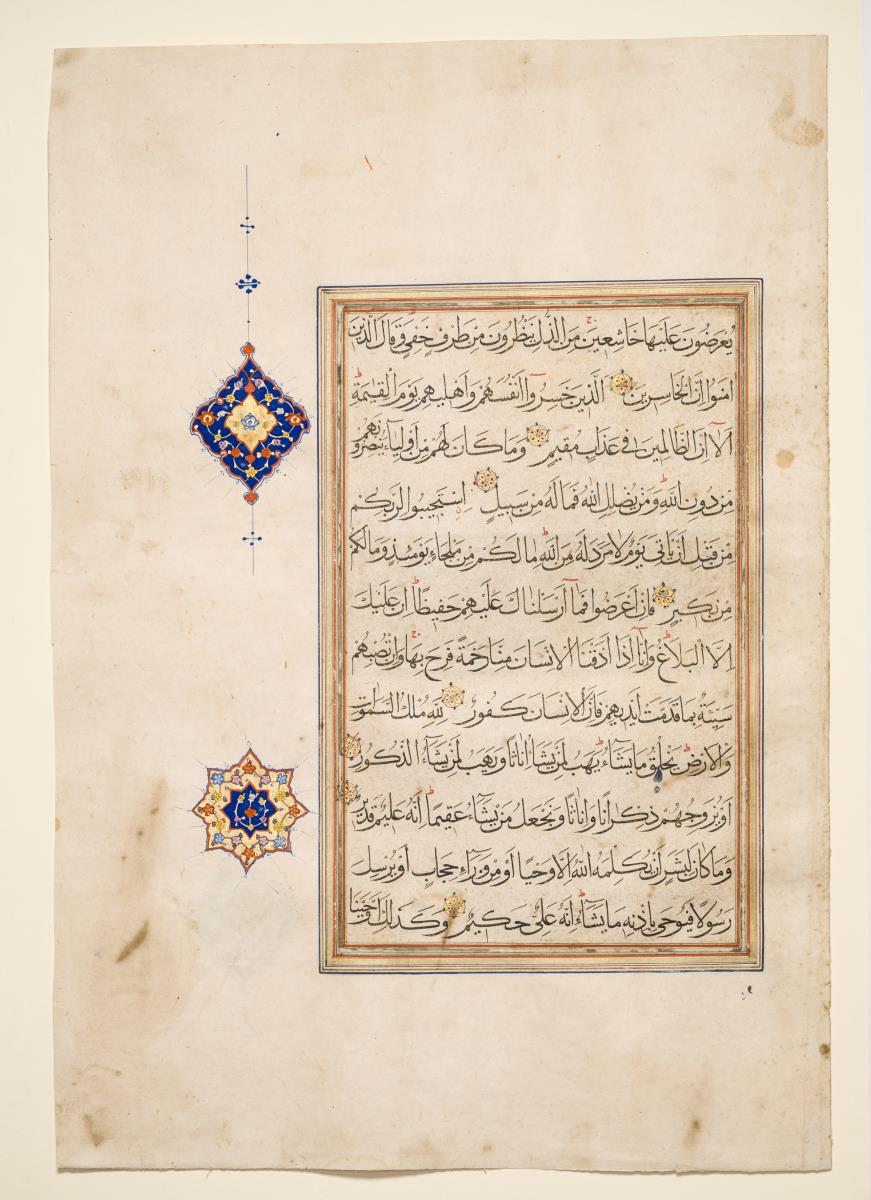 يُعْرَضُونَ عَلَيْهَا خَاشِعِينَ مِنَ الذُّلِّ يَنْظُرُونَ مِنْ طَرْفٍ خَفِيٍّ وَقَالَ الَّذِينَ
اٰمَنُوا اِنَّ الْخَاسِرِينَ الَّذِينَ خَسِرُوٓا اَنْفُسَهُمْ وَاَهْلِيهِمْ يَوْمَ الْقِيٰمَةِ
اَلَآ اِنَّ الظَّالِمِينَ فِي عَذَابٍ مُقِيمٍ وَمَا كَانَ لَهُمْ مِنْ اَوْلِيَآءَ يَنْصُرُونَهُمْ
مِنْ دُونِ اللّٰهِ وَمَنْ يُضْلِلِ اللّٰهُ فَمَا لَهُ مِنْ سَبِيلٍ اِسْتَجِيبُوا لِرَبِّكُمْ
مِنْ قَبْلِ اَنْ يَاْتِيَ يَوْمٌ لَا مَرَدَّ لَهُ مِنَ اللّٰهِ مَا لَكُمْ مِنْ مَلْجَاءٍ يَوْمَئِذٍ وَمَا لَكُمْ
مِنْ نَكِيرٍ فَاِنْ اَعْرَضُوا فَمَآ اَرْسَلْنَاكَ عَلَيْهِمْ حَفِيظًا اِنْ عَلَيْكَ
اِلَّا الْبَلَاغُ وَاِنَّآ اِذَآ اَذَقْنَا الْاِنْسَانَ مِنَّا رَحْمَةً فَرِحَ بِهَا وَاِنْ تُصِبْهُمْ
سَيِّئَةٌ بِمَا قَدَّمَتْ اَيْدِيهِمْ فَاِنَّ الْاِنْسَانَ كَفُورٌ لِلّٰهِ مُلْكُ السَّمٰوَاتِ
وَالْاَرْضِ يَخْلُقُ مَا يَشَآءُ يَهَبُ لِمَنْ يَشَآءُ اِنَاثًا وَيَهَبُ لِمَنْ يَشَآءُ الذُّكُورَ
اَوْ يُزَوِّجُهُمْ ذُكْرَانًا وَاِنَاثًا وَيَجْعَلُ مَنْ يَشَآءُ عَقِيمًا اِنَّهُ عَلِيمٌ قَدِيرٌ
وَمَا كَانَ لِبَشَرٍ اَنْ يُكَلِّمَهُ اللّٰهُ اِلَّا وَحْيًا اَوْ مِنْ وَرَآءِ حِجَابٍ اَوْ يُرْسِلَ
رَسُولًا فَيُوحِيَ بِاِذْنِهِ مَا يَشَآءُ اِنَّهُ عَلِيٌّ حَكِيمٌ وَكَذٰلِكَ اَوْحَيْنَا